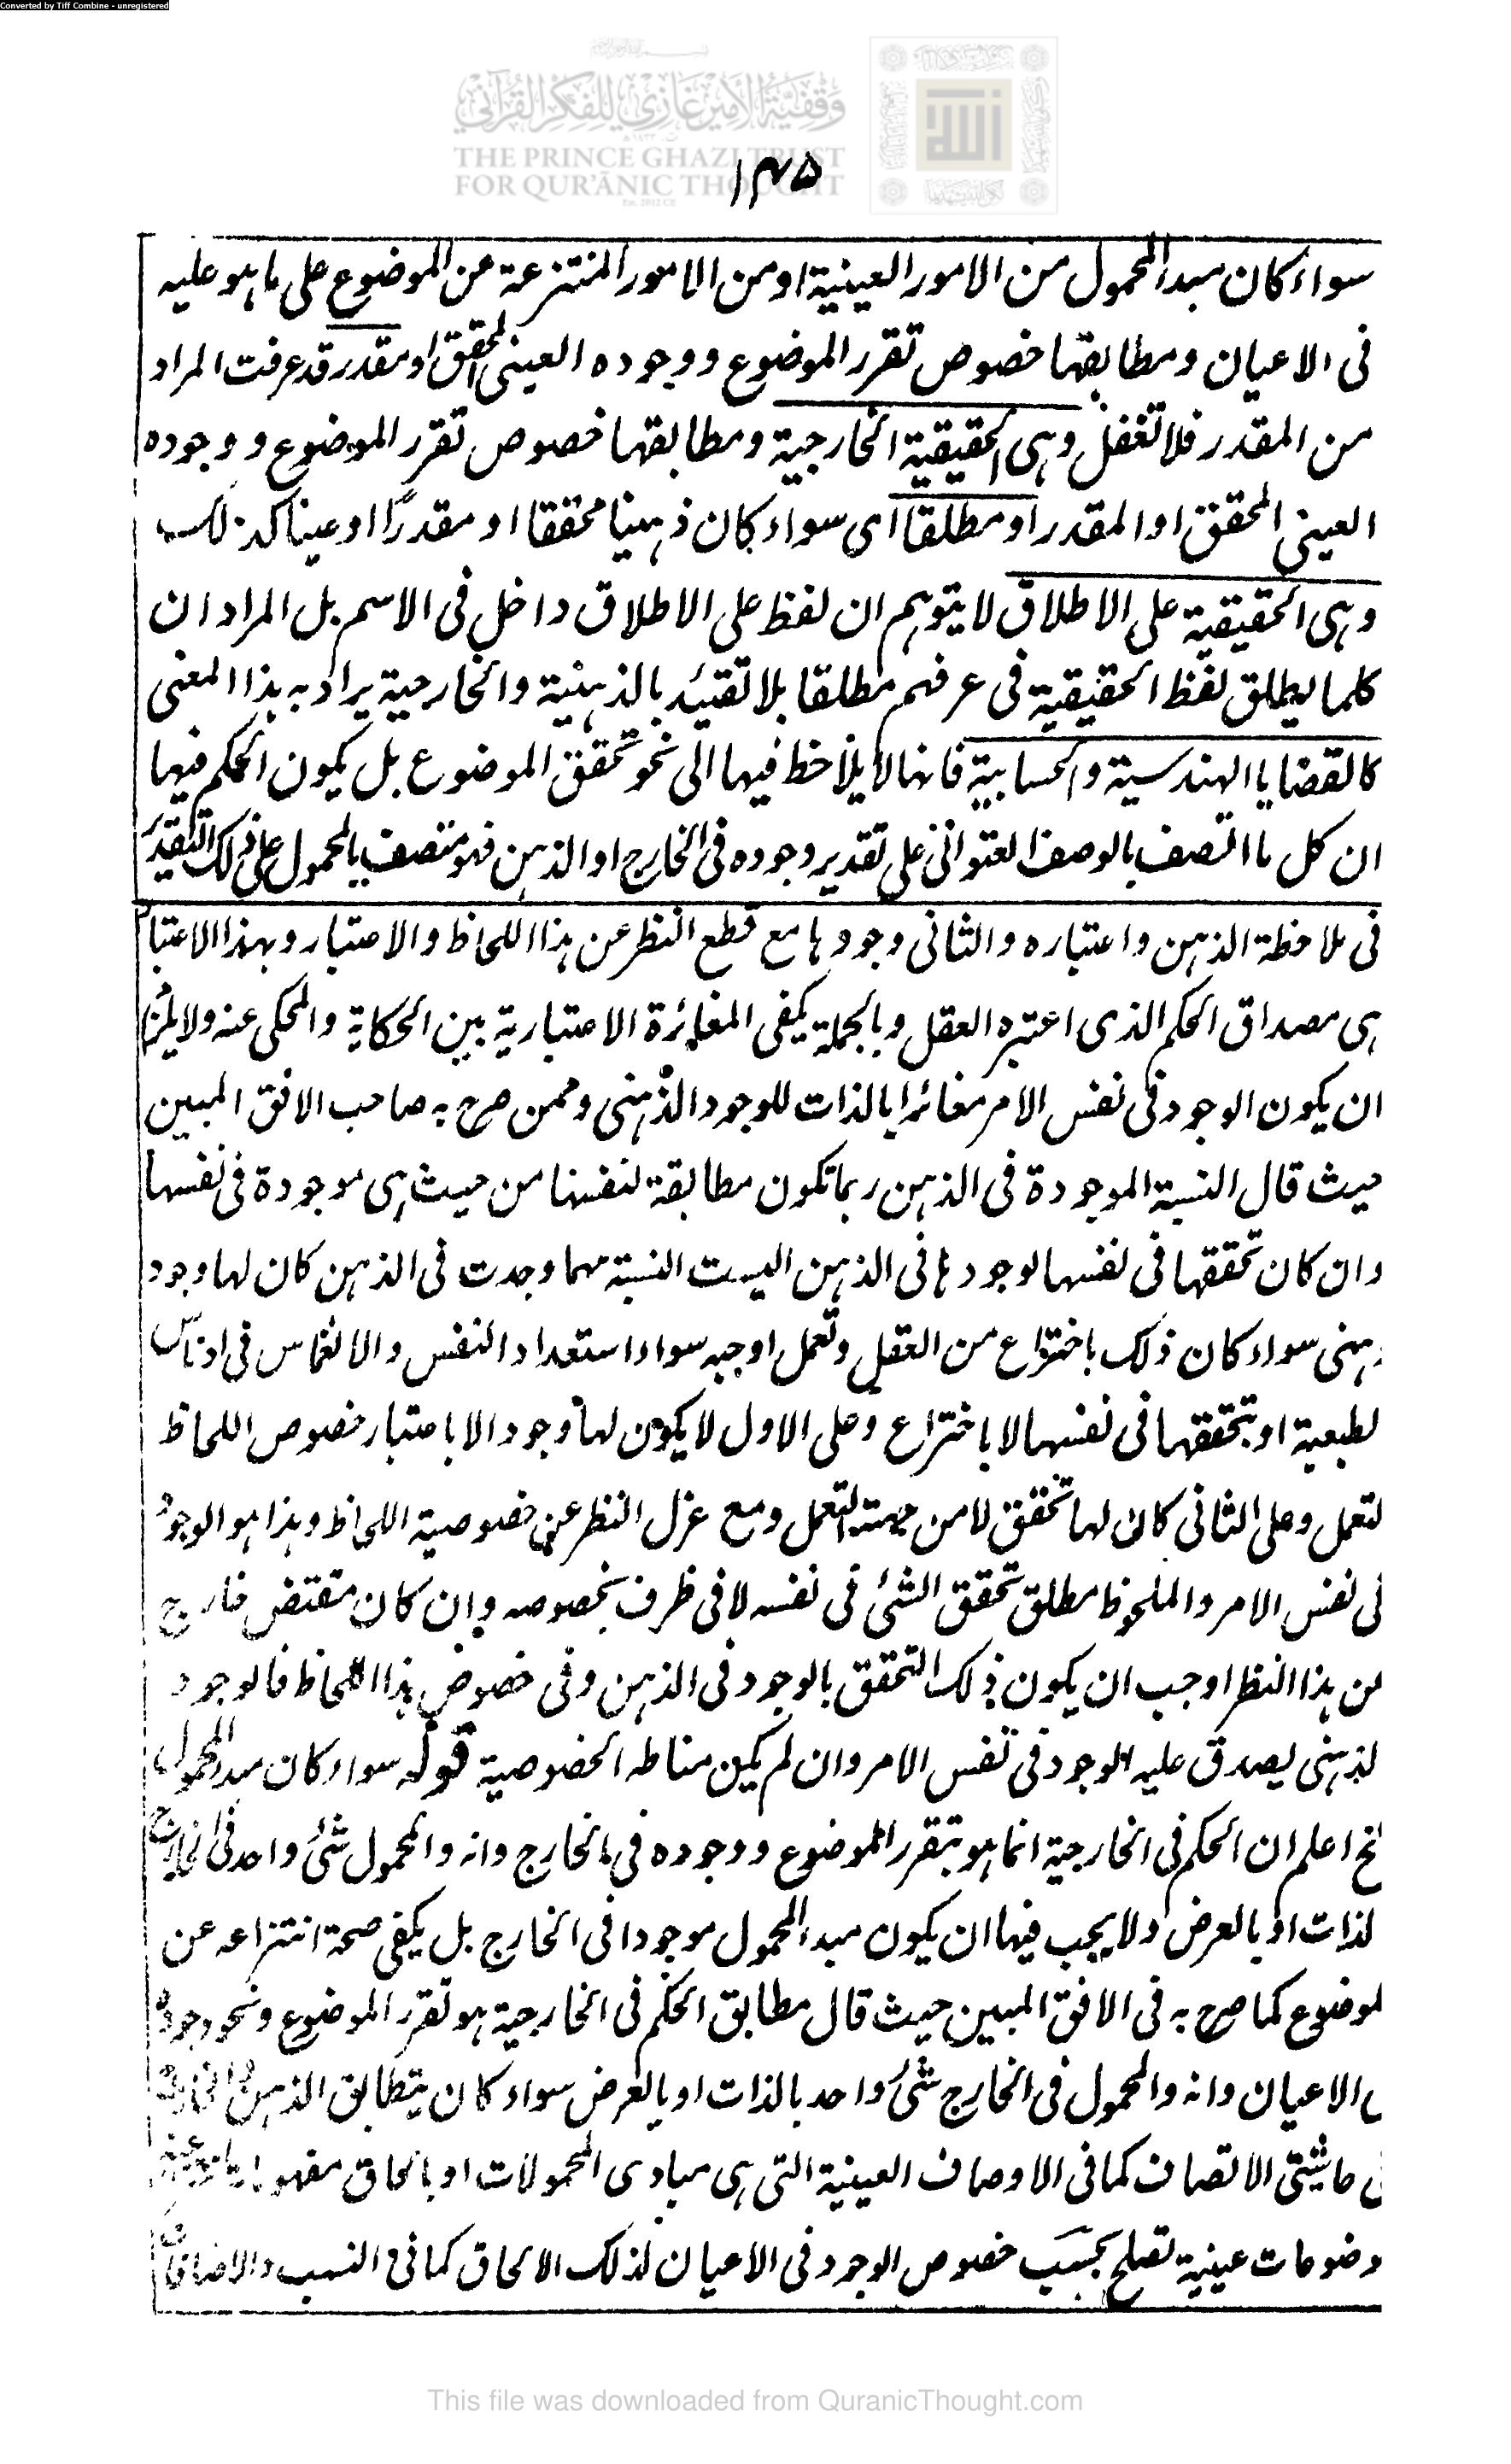 Converted by Tiff Combine - unregistered
وقفية الأمير غازي للفكر القرآني
THE PRINCE GHAZI TRUST
FOR QUR'ĀNIC THOUGHT
۱۴۵
سواء كان مبدأ المحمول من الامور العينية او من الامور المنتزعة عن الموضوع على ما هو عليه
فى الاعيان ومطابقها خصوص تقرر الموضوع ووجوده العينى المحقق او مقدر قد عرفت المراد
من المقدر فلا تغفل وهى الحقيقية الخارجية ومطابقها خصوص تقرر الموضوع ووجوده
العينى المحقق او المقدر او مطلقا اى سواء كان ذهنيا محققا او مقدرًا او عينا كذلك
وهى الحقيقية على الاطلاق لا يتوهم ان لفظ على الاطلاق داخل فى الاسم بل المراد ان
كلما يطلق لفظ الحقيقية فى عرفهم مطلقا بلا تقييد بالذهنية والخارجية يراد به هذا المعنى
كالقضايا الهندسية والحسابية فانها لا يلاحظ فيها الى نحو تحقق الموضوع بل يكون الحكم فيها
ان كل ما اتصف بالوصف العنوانى على تقدير وجوده فى الخارج او الذهن فهو متصف بالمحمول على ذلك التقدير
فى ملاحظة الذهن واعتباره والثانى وجودها مع قطع النظر عن هذا اللحاظ والاعتبار وبهذا الاعتبار
هى مصداق الحكم الذى اعتبره العقل وبالجملة يكفى المغايرة الاعتبارية بين الحكاية والمحكى عنه ولا يلزم
ان يكون الوجود فى نفس الامر مغائرا بالذات للوجود الذهنى وممن صرح به صاحب الافق المبين
حيث قال النسبة الموجودة فى الذهن ربما تكون مطابقة لنفسها من حيث هى موجودة فى نفسها
وان كان تحققها فى نفسها لوجودها فى الذهن اليست النسبة مهما وجدت فى الذهن كان لها وجود
ذهنى سواء كان ذلك باختراع من العقل وتعمل اوجبه سواء استعداد النفس والانغماس فى ادناس
لطبعية او بتحققها فى نفسها لا باختراع وعلى الاول لا يكون لها وجود الا باعتبار خصوص اللحاظ
لتعمل وعلى الثانى كان لها تحقق لا من جهة التعمل ومع عزل النظر عن خصوصية اللحاظ وهذا هو الوجود
فى نفس الامر والملحوظ مطلق تحقق الشئ فى نفسه لا فى ظرف بخصوصه وان كان مقتض خارج
من هذا النظر اوجب ان يكون ذلك التحقق بالوجود فى الذهن وفى خصوص هذا اللحاظ فالوجود
لذهنى يصدق عليه الوجود فى نفس الامر وان لم يكن مناطه الخصوصية قوله سواء كان مبدأ المحمول
الخ اعلم ان الحكم فى الخارجية انما هو بتقرر الموضوع ووجوده فى الخارج وانه والمحمول شئ واحد فى الخارج
لذات او بالعرض ولا يجب فيها ان يكون مبدأ المحمول موجودا فى الخارج بل يكفى صحة انتزاعه عن
لموضوع كما صرح به فى الافق المبين حيث قال مطابق الحكم فى الخارجية هو تقرر الموضوع ونحو وجوده
فى الاعيان وانه والمحمول فى الخارج شئ واحد بالذات او بالعرض سواء كان بتطابق الذهن
حاشيتى الاتصاف كما فى الاوصاف العينية التى هى مبادى المحمولات او بالحاق مفهومات
وضوعات عينية تصلح بحسب خصوص الوجود فى الاعيان لذلك الالحاق كما فى النسب والاضافات
This file was downloaded from QuranicThought.com